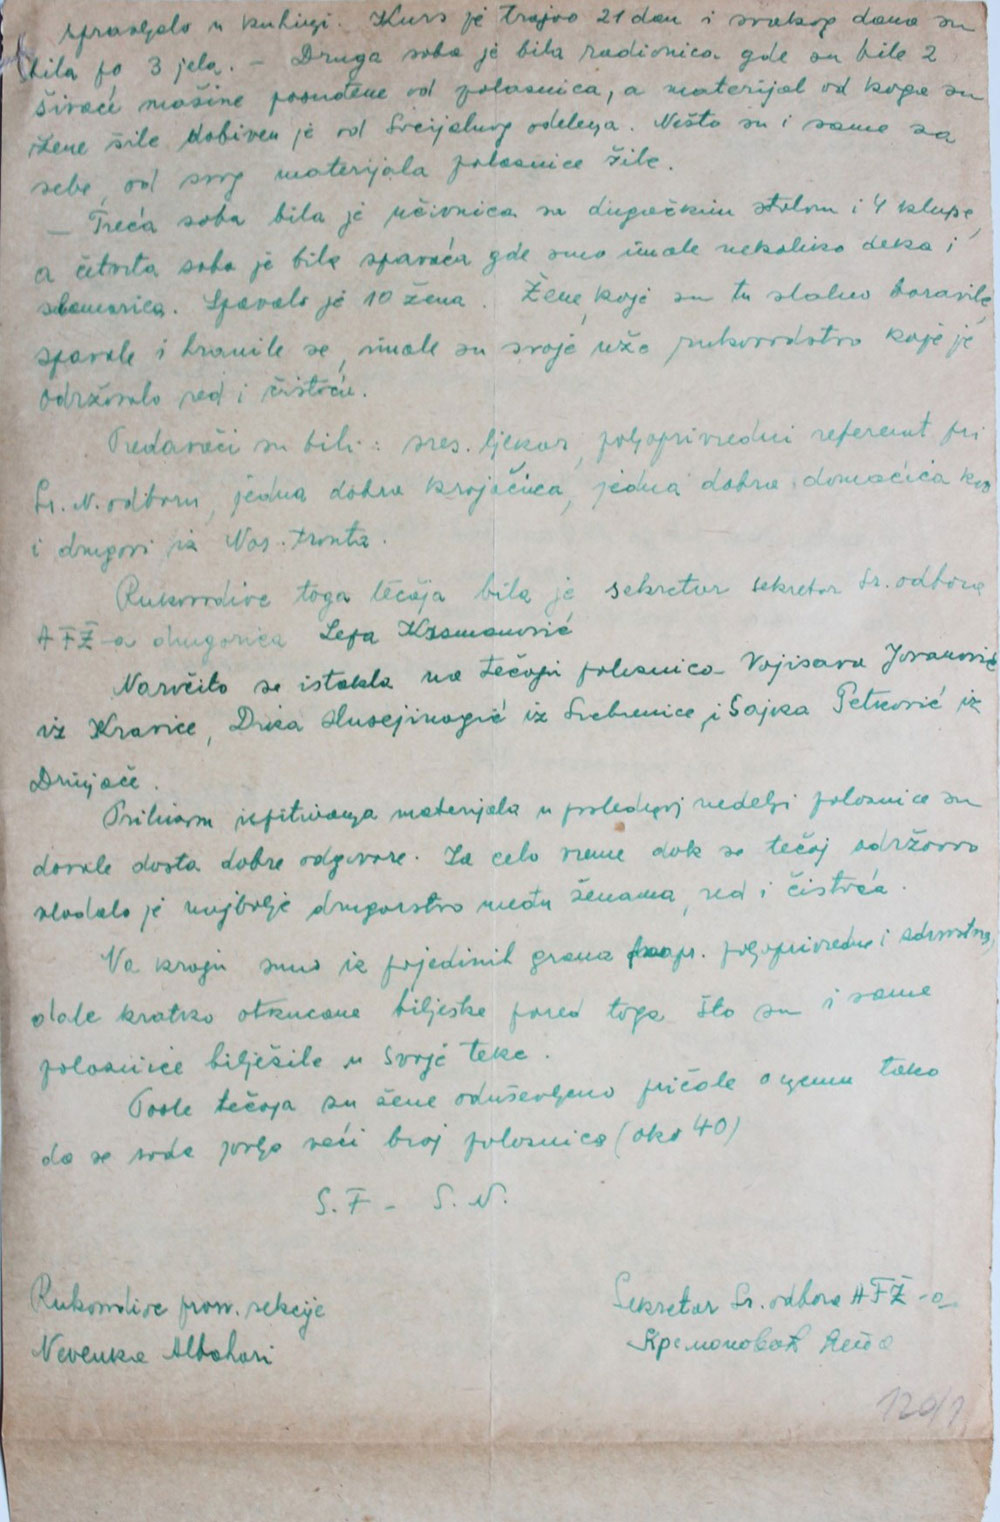 spravljalo u kuhinji. Kurs je trajao 21 dan i svakog dana su
bila po 3 jela. – Druga soba je bila radionica gde su bile 2
šivaće mašine posuđene od polaznica, a materijal od koga su
žene šile dobiven je od Socijalnog odelenja. Nešto su i same za
sebe, od svog materijala polaznice šile.
– Treća soba bila je učionica sa dugačkim stolom i 4 klupe,
a čitvrta soba je bila spavaća gde smo imale nekoliko deka i
slamarica. Spavalo je 10 žena. Žene, koje su tu stalno boravile,
spavale i hranile se, imale su svoje uže rukovodstvo koje je
održavalo red i čistoću.
Predavači su bili: sres. ljekar, poljoprivredni referent pri
Sr. N. odboru, jedna dobra krojačica, jedna dobra domaćica kao
i drugovi iz Nar. fronta.
Rukovodioc toga tečaja bila je sekretar sekretar Sr. odbora
AFŽ-a drugarica Lepa
Naročito se istakla na tečaju polaznica Vojisava Jovanović
iz Kravice, Husejinagić iz Srebrenice, i Sajka Petković iz
Drinjače.
Prilikom ispitivanja materijala u poslednjoj nedelji polaznice su
davale dosta dobre odgovore. Za celo vreme dok se tečaj održavao
vladalo je najbolje drugarstvo među ženama, red i čistoća.
Na kraju smo iz pojedinih grana napr. poljoprivredne i zdravstva,
dale kratko otkucane bilješke pored toga što su i same
polaznice bilježile u svoje teke.
Posle tečaja su žene oduševljeno pričale o njemu tako
da se sada javlja veći broj polaznica (oko 40)
S. F – S. N.
Rukovodioc prosv. sekcije
Nevenka Albahari
Sekretar Sr. odbora AFŽ-a
Лепа
120/1